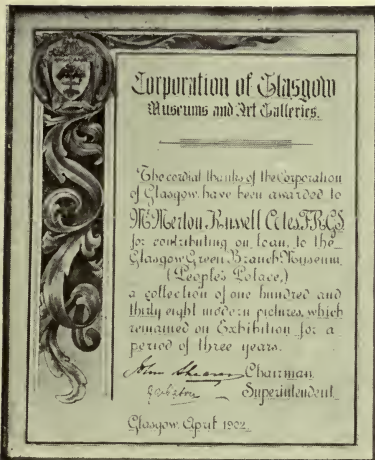 Corporation of Glasgow
Museums and Art Galleries.
The cordial thanks of the Corporation
of Glasgow have been awarded to
Mr. Merton Russell Cotes, F.R.G.S.
for contributing on loan, to the
Glasgow Green Branch Museum
(People's Palace,)
a collection of one hundred and
thirty eight modern pictures, which
remained on Exhibition for a
period of three years.
John Shearer Chairman
Superintendent
Glasgow, April 1902